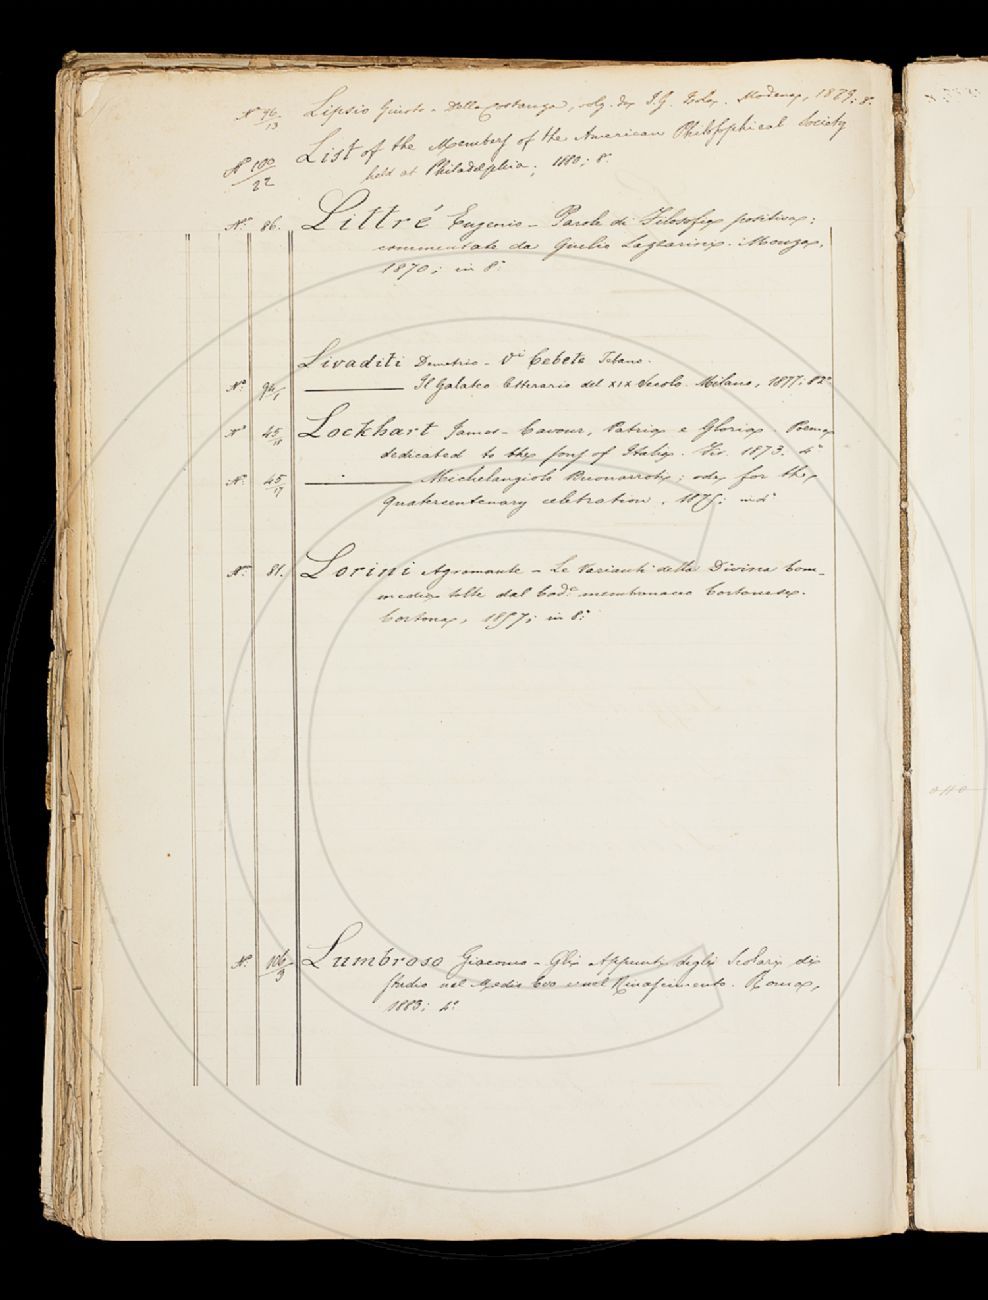 N° 96/13 Lipsio Giusto - Della costanza, volg. da I. G. Isola. Modena, 1879; 8.°
N° 100/22 List of the Members of the American Philosophical Society
held at Philadelphia; 1880; 8.°
N.° 86. Littré Eugenio - Parole di Filosofia positiva;
commentate da Lazzarini. Monza,
1870; in 8.°
Livaditi Demetrio - Di Cebete Tebano.
N.° 94/1 ——— Il Galateo letterario del XIX Secolo. Milano, 1877; 82.°
N.° 45/18 Lockhart James - Cavour, Patria e Gloria. Poema
dedicated to the sons of Italy. Fir. 1873. 4.°
N.° 45/17 ——— Michelangiolo Buonarroti; ode for the
quatercentenary celebration, 1875; in 4.°
N.° 81. Lorini Agramante - Le Varianti della Divina Com-
media tolte dal Cod.e membranaceo Cortonese.
Cortona, 1857; in 8.°
N.° 106/3 Lumbroso Giacomo - Gli Appunti degli Scolari di
studio nel Medio Evo e nel Rinascimento. Roma,
1883; 4.°